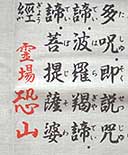 多呪即説呪
諦波羅羯諦
諦菩提薩婆
經
霊場恐山